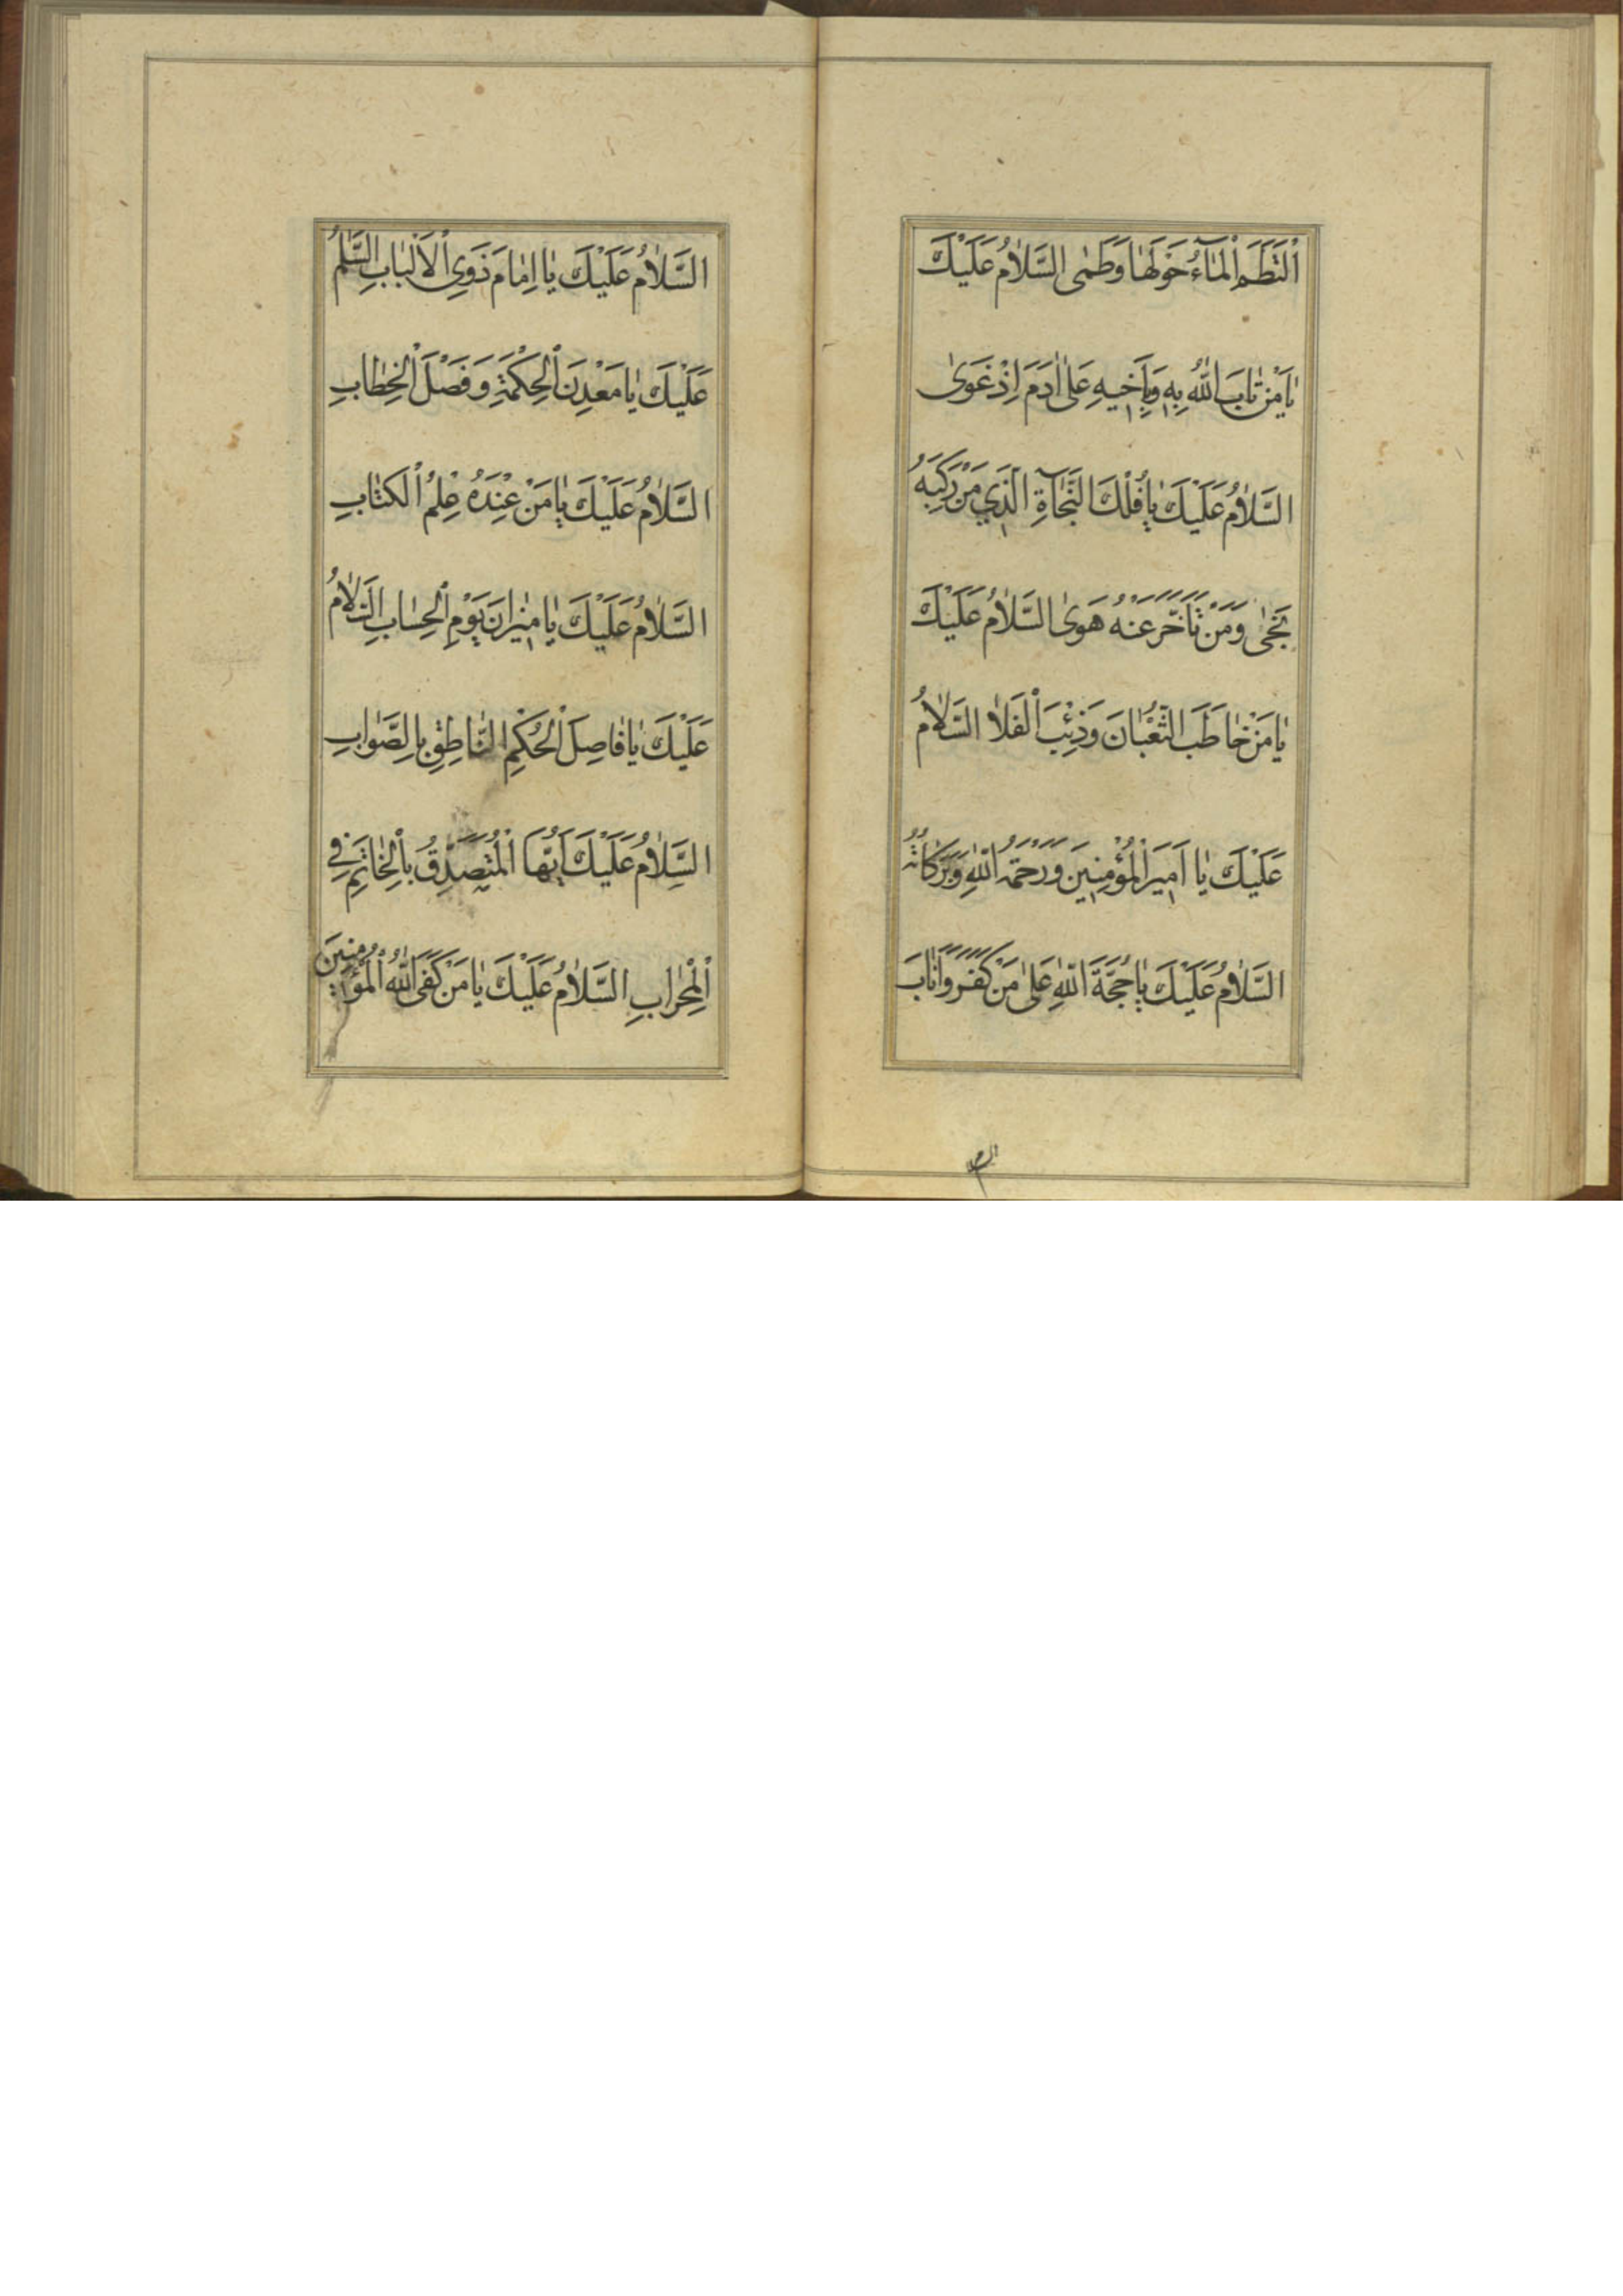 اَلْتَطَمَ الْمٰآءُ حَوْلَهٰا وَطَمٰى السَّلاٰمُ عَلَيْكَ
يٰا مَنْ تٰابَ اللّٰهُ بِهِ وَبِاَخيهِ عَلىٰ اٰدَمَ اِذْ غَوىٰ
السَّلاٰمُ عَلَيْكَ يٰا فُلْكَ النَّجٰاةِ الَّذي مَنْ رَكِبَهُ
نَجىٰ وَمَنْ تَاَخَّرَ عَنْهُ هَوىٰ السَّلاٰمُ عَلَيْكَ
يٰا مَنْ خٰاطَبَ الثُّعْبٰانَ وَذِئْبَ الْفَلاٰ السَّلاٰمُ
عَلَيْكَ يٰا اَميرَ الْمُؤْمِنينَ وَرَحْمَةُ اللّٰهِ وَبَرَكٰاتُهُ
السَّلاٰمُ عَلَيْكَ يٰا حُجَّةَ اللّٰهِ عَلىٰ مَنْ كَفَرَ وَاَنٰابَ
السَّلاٰمُ عَلَيْكَ يٰا اِمٰامَ ذَوِي الْاَلْبٰابِ السَّلٰمُ
عَلَيْكَ يٰا مَعْدِنَ الْحِكْمَةِ وَفَصْلَ الْخِطٰابِ
السَّلاٰمُ عَلَيْكَ يٰا مَنْ عِنْدَهُ عِلْمُ الْكِتٰابِ
السَّلاٰمُ عَلَيْكَ يٰا ميٰزانَ يَوْمِ الْحِسٰابِ السَّلاٰمُ
عَلَيْكَ يٰا فٰاصِلَ الْحُكْمِ النّٰاطِقِ بِالصَّوٰابِ
السَّلاٰمُ عَلَيْكَ اَيُّهَا الْمُتَصَدِّقُ بِالْخٰاتَمِ فِي
الْمِحْرٰابِ السَّلاٰمُ عَلَيْكَ يٰا مَنْ كَفَى اللّٰهُ الْمُؤْمِنينَ